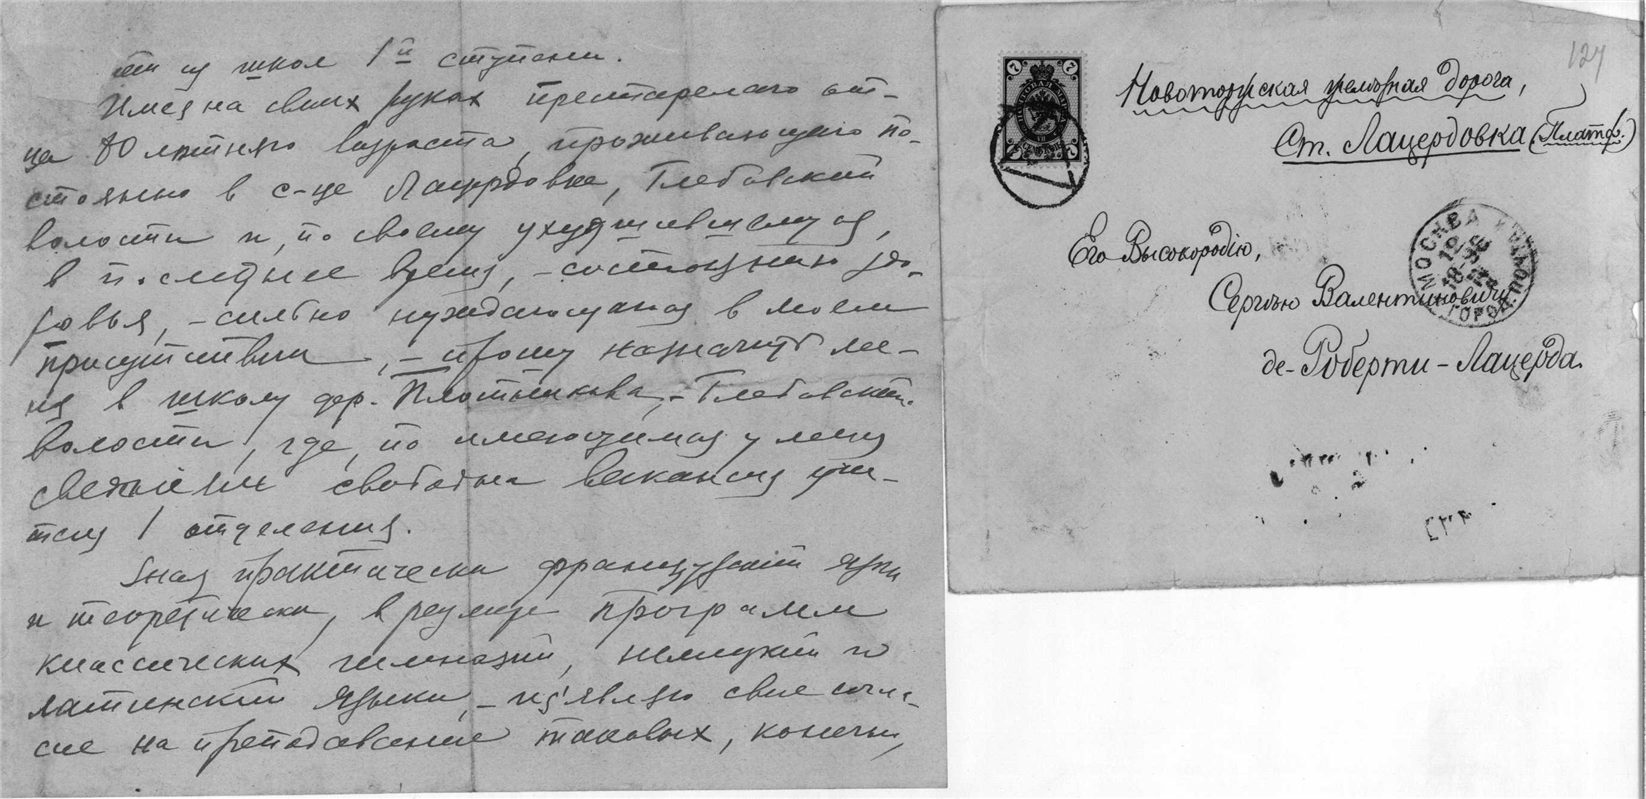 из школ 1й ступени.
Имея на своих руках престарелаго от-
ца 80 летняго возраста, проживающаго по-
стоянно в с-це Лацердовка, Глебовский
волости и, по своему ухудшившемуся,
в последнее время, - состоянию здо-
ровья, - сильно нуждающагося в моем
присутствии, - прошу назначить ме-
ня в школу дер. Плотникова, - Глебовской
волости, где, по имеющимся у меня
сведениям свободна вакансия учи-
теля 1 отделения.
Зная практически французский язык
и теоретически, в размере программ
классических гимназий, немецкий и
латинский языки, - изъявляю свое согла-
сие на преподавание таковых, конечно,
127
Новоторжская желѣзная дорога,
Ст. Лацердовка (Платф.)
7
7
Его Высокородію,
Сергѣю Валентиновичу
де-Роберти-Лацерда.
МОСКВА
ГОРОД. ПОЧТА